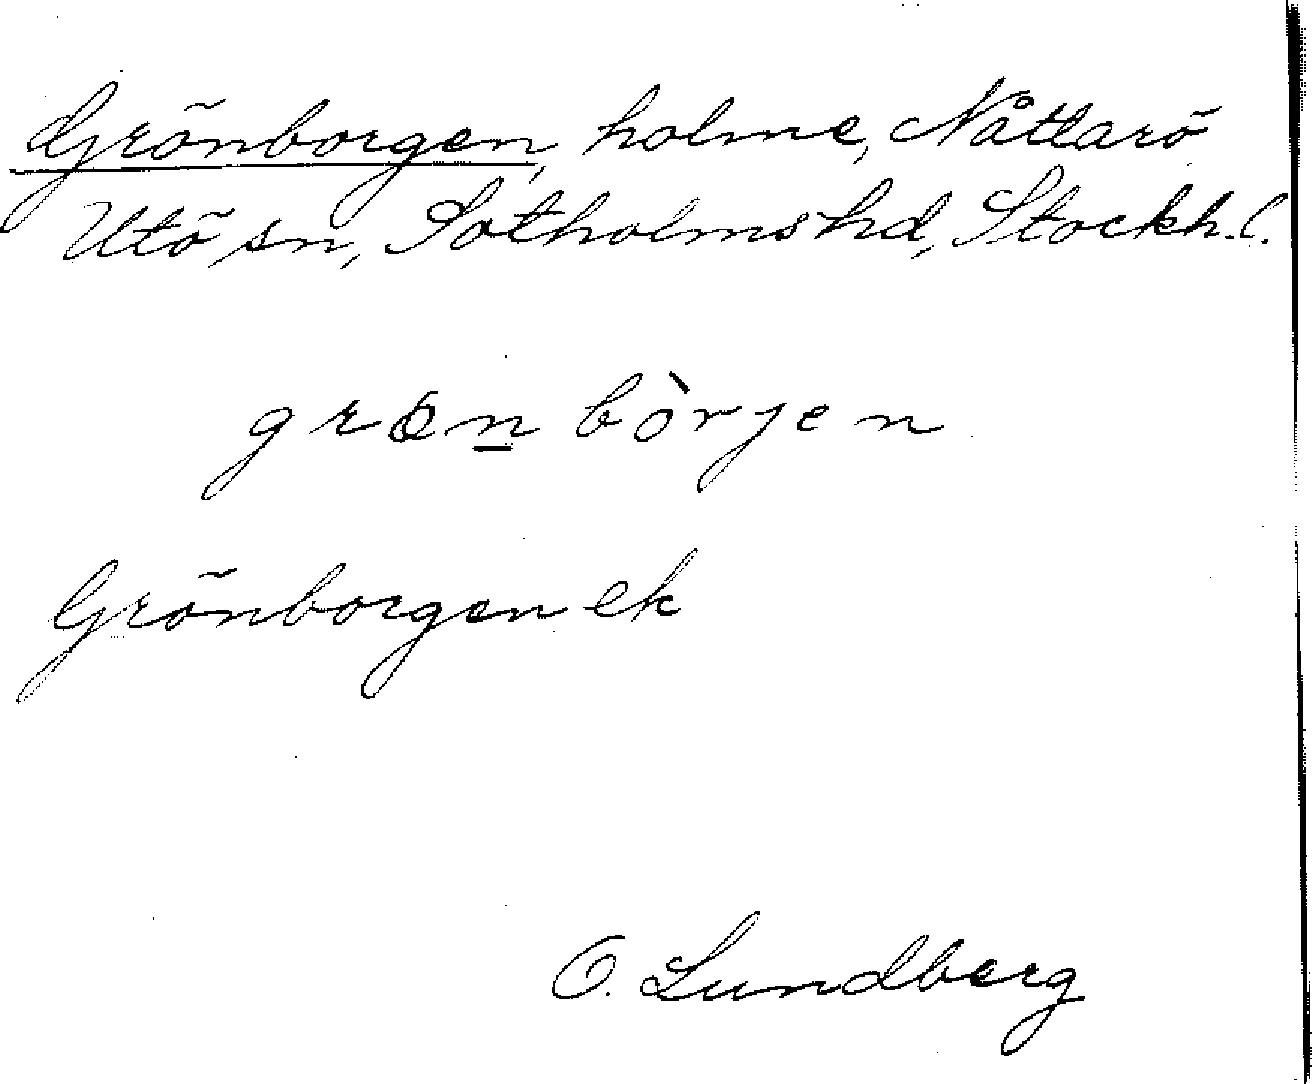 Grönborgen, holme, Nåttarö
Utö sn, Sotholms hd, Stockh. l.
grönbòrjen
Grönborgen ek
O. Lundberg